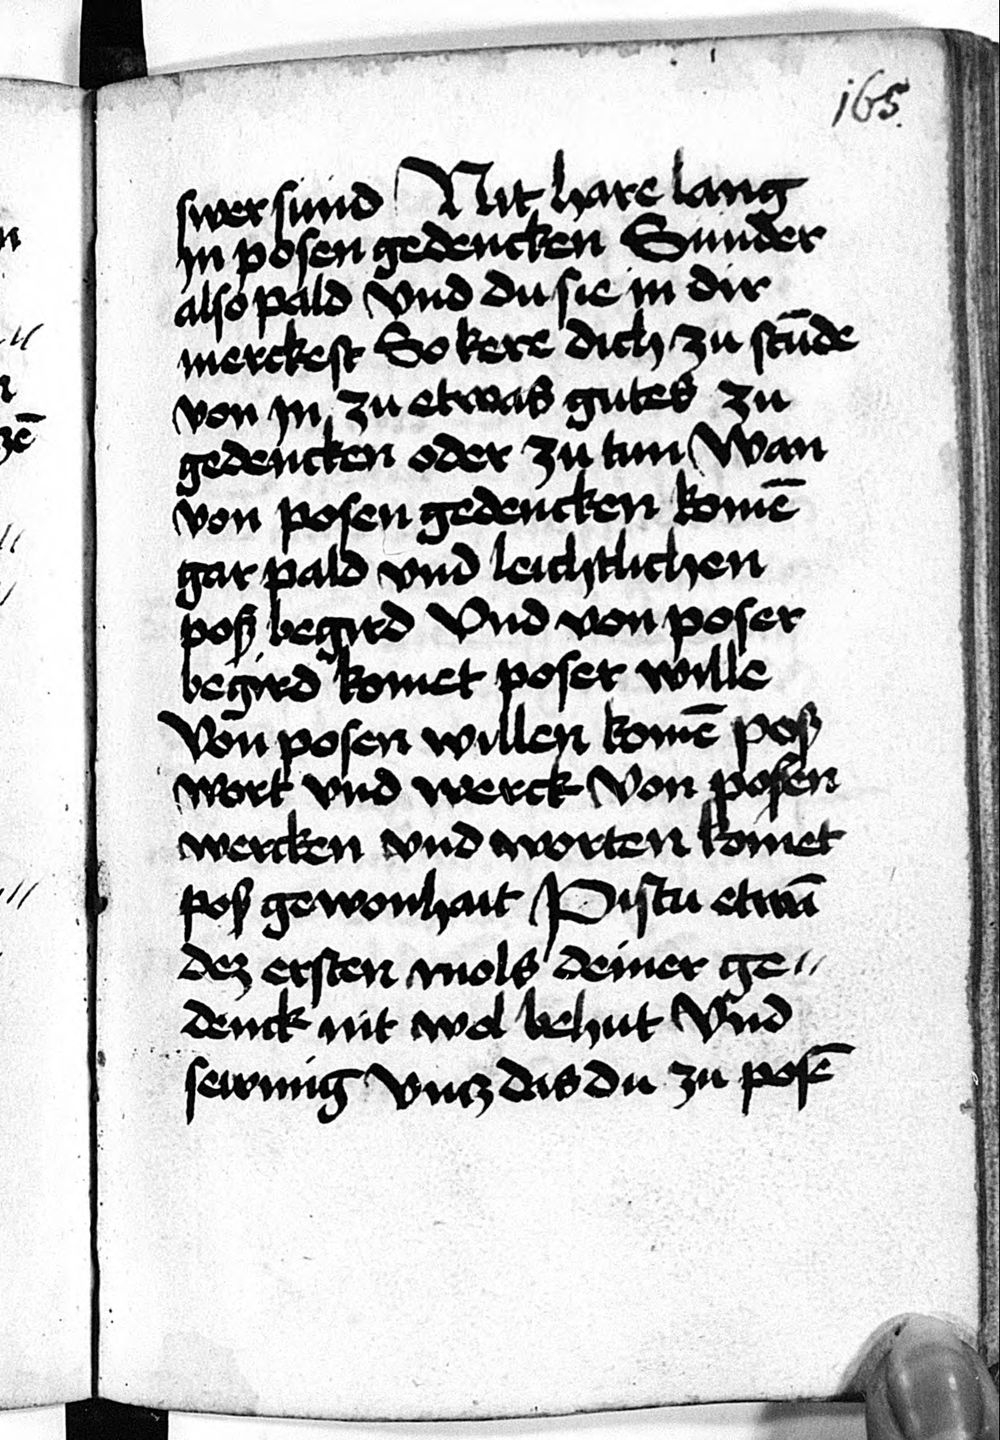 165.
swer sund Nit hare lang
in posen gedencken Sunder
also pald vnd du sie in dir
merckest So kere dich zu stu̅de
von in zu etwas gutes zu
gedencken oder zu tun Wan
von posen gedencken kome̅
gar pald vnd leichtlichen
poß begird Vnd von poser
begird komet poser wille
Von posen willen kome̅ poß
wort vnd werck Von posen
wercken vnd worten komet
poß gewonhait Pistu etwa̅
dez ersten mols deiner ge〃
denck nit wol behut Vnd
vntz das du zu pose̅